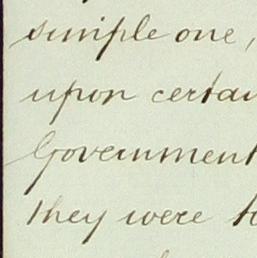 simple one,
upon
Government
they were